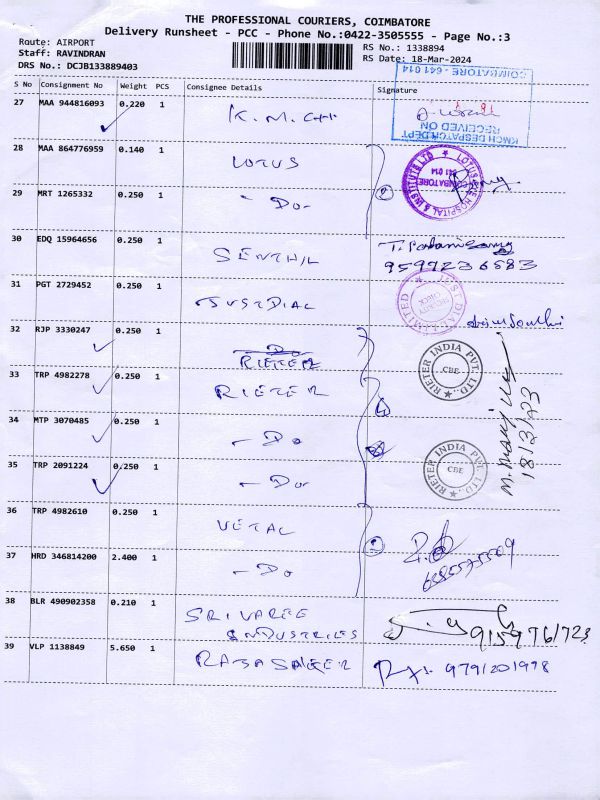 THE PROFESSIONAL COURIERS, COIMBATORE
Delivery Runsheet - PCC - Phone No.:0422-3505555 - Page No.:3
Route: AIRPORT
Staff: RAVINDRAN
DRS No.: DCJB133889403
RS No.: 1338894
RS Date: 18-Mar-2024
S No Consignment No Weight PCS Consignee Details Signature
COIMBATORE - 641 014
KMCH DESPATCH DEPT
RECEIVED ON
27 MAA 944816093 0.220 1 K.M.CH
28 MAA 864776959 0.140 1 LOTUS
29 MRT 1265332 0.250 1 - Do -
30 EDQ 15964656 0.250 1 SENTHIL
9599236583
31 PGT 2729452 0.250 1 JUSTDIAL
32 RJP 3330247 0.250 1 Do
RIETER
RIETER INDIA PVT. LTD.,
CBE
33 TRP 4982278 0.250 1 RIETER
34 MTP 3070485 0.250 1 - Do
35 TRP 2091224 0.250 1 - Do
RIETER INDIA PVT. LTD.,
CBE
18/3/23
36 TRP 4982610 0.250 1 VETAL
37 HRD 346814200 2.400 1 - Do
38 BLR 490902358 0.210 1 SRIVAREE
INDUSTRIES
39 VLP 1138849 5.650 1 RAJASAKER 9791201998